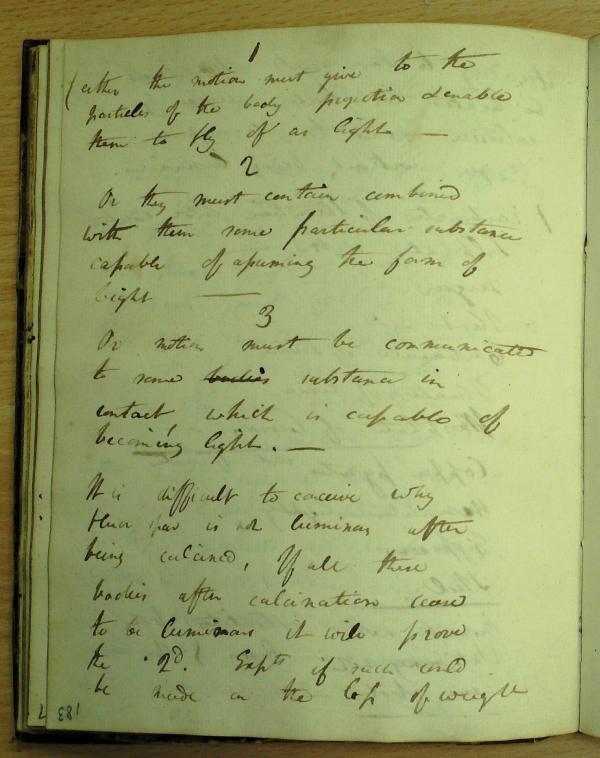 1
(either the motion must give to the
particles of the body projection & enable
them to fly of as light —
2
Or they must contain combined
with them some particular substance
capable of assuming the form of
light —
3
Or motion must be communicated
to some bodies substance in
contact which is capable of
becoming light. —
It is difficult to conceive why
fluor spar is not luminous after
being calcined, If all these
bodies after calcination cease
to be luminous it will prove
the 2d. Expts if such could
be made on the loss of weight
183 7